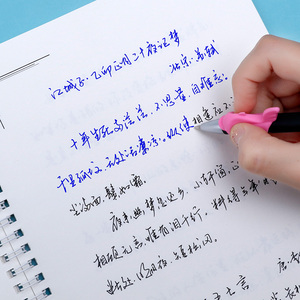 江城子·乙卯正月二十夜记梦
北宋·苏轼
十年生死两茫茫,不思量,自难忘。
千里孤坟,无处话凄凉。纵使相逢应不
尘满面,鬓如霜。
夜来幽梦忽还乡,小轩窗,正
相顾无言,惟有泪千行。料得年年
明月夜,短松冈。